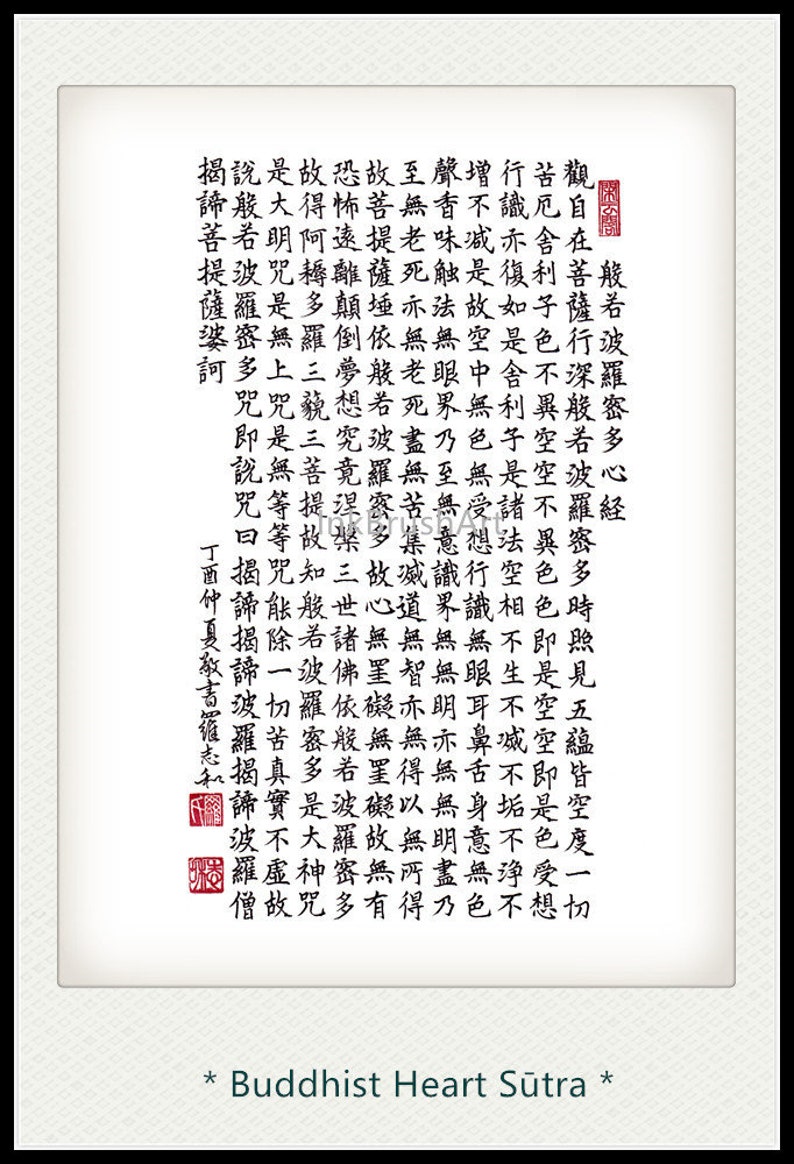 般若波羅密多心経
觀自在菩薩行深般若波羅密多時照見五蘊皆空度一切
苦厄舍利子色不異空空不異色色即是空空即是色受想
行識亦復如是舍利子是諸法空相不生不滅不垢不浄不
增不減是故空中無色無受想行識無眼耳鼻舌身意無色
聲香味触法無眼界乃至無意識界無無明亦無無明盡乃
至無老死亦無老死盡無苦集滅道無智亦無得以無所得
故菩提薩埵依般若波羅密多故心無罣礙無罣礙故無有
恐怖遠離顛倒夢想究竟涅槃三世諸佛依般若波羅密多
故得阿耨多羅三藐三菩提故知般若波羅密多是大神咒
是大明咒是無上咒是無等等咒能除一切苦真實不虛故
說般若波羅密多咒即說咒曰揭諦揭諦波羅揭諦波羅僧
揭諦菩提薩婆訶
丁酉仲夏敬書羅志和
InkBrushArt
* Buddhist Heart Sūtra *